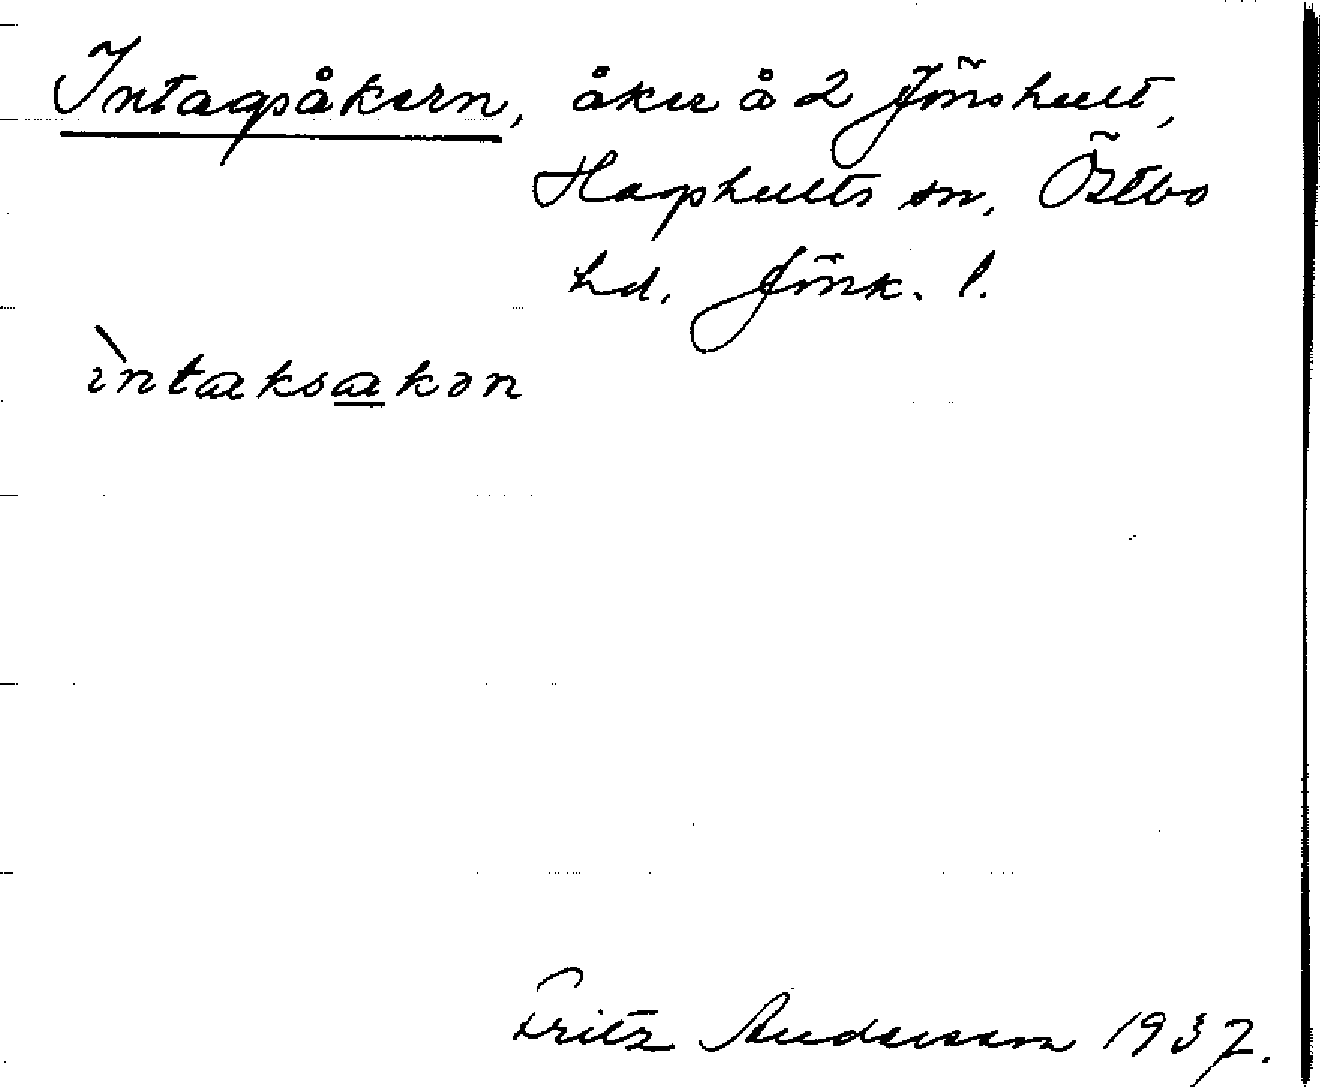 Intagsåkern, åker å 2 Jönshult,
Hagshults sn, Östbo
hd. Jönk. l.
ìntaksakən
Fritz Andersson 1937.